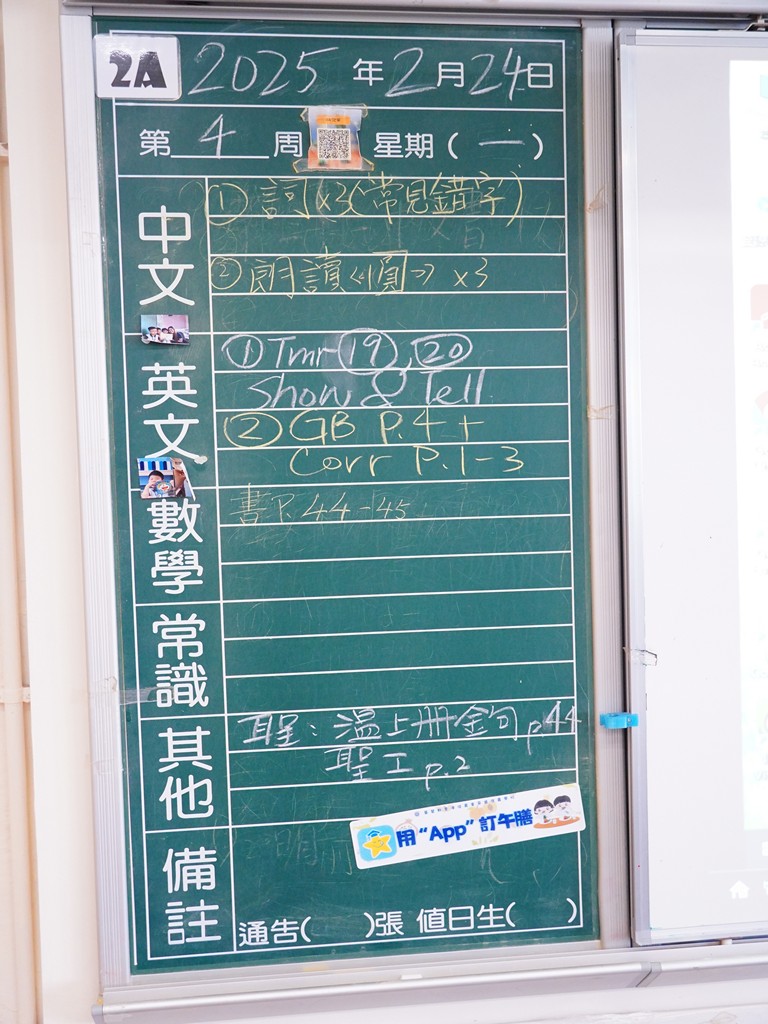 2A 2025年2月24日
第 4 周 星期(一)
中文
① 詞x3(常見錯字)
② 朗讀<圓> x3
英文
① Tmr ⑲, ⑳
Show & Tell
② GB P.4 +
Corr P.1-3
數學
書P.44-45
常識
其他
聖：溫上册金句p44
聖工p.2
備註
用“App”訂午膳
通告( )張 值日生( )